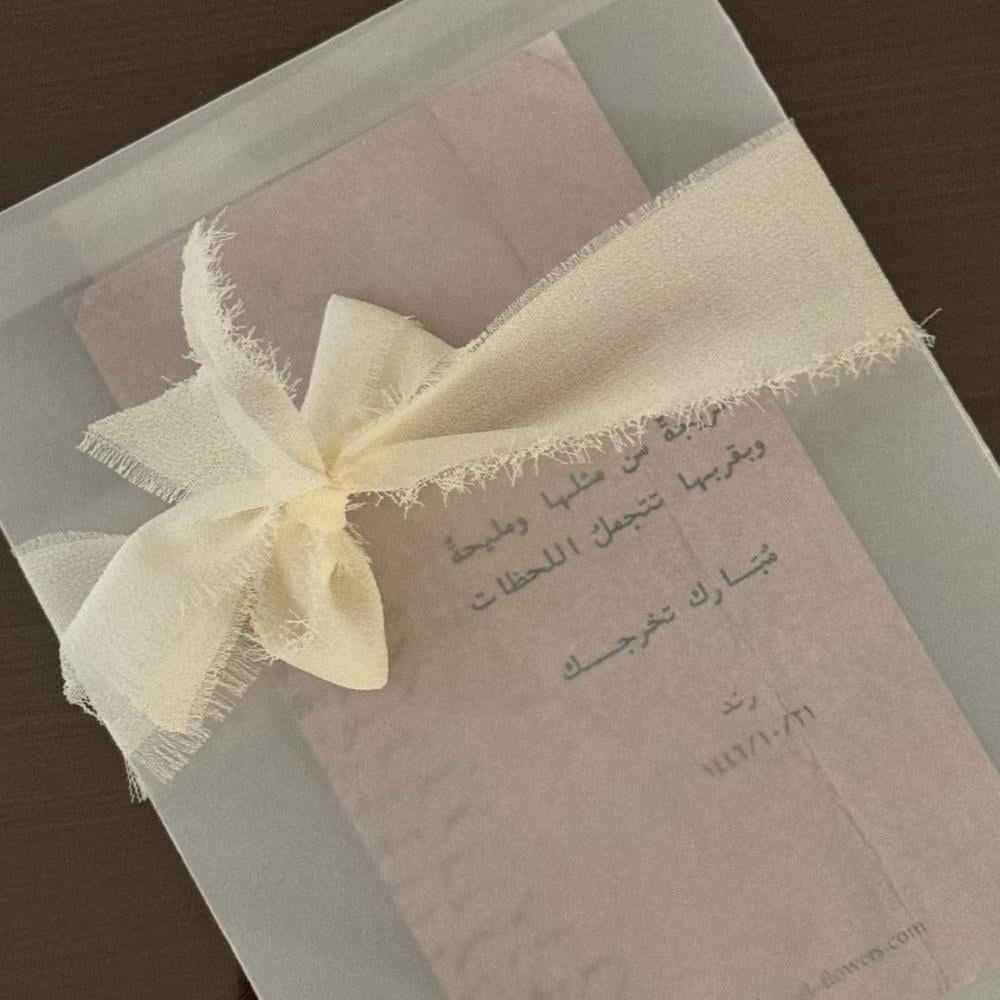 من مثلها ومليحةٌ
وبقربها تتجمل اللحظات
مُبَـــارك تخرجـــك
رند
١٤٤٦/١٠/٢١
flowers.com